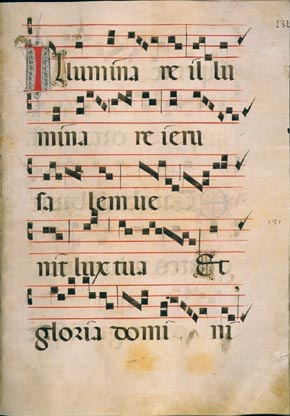 Illumina re il lu
mina re ieru
sa lem ue
nit lux tua Et
gloria domi ni
151